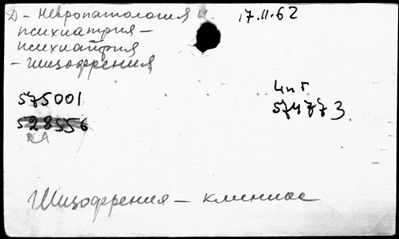 Д - Невропатология и
17.II.62
психиатрия -
психиатрия
- шизофрения
575001
528556
4 инт
574773
Шизофрения - клиника